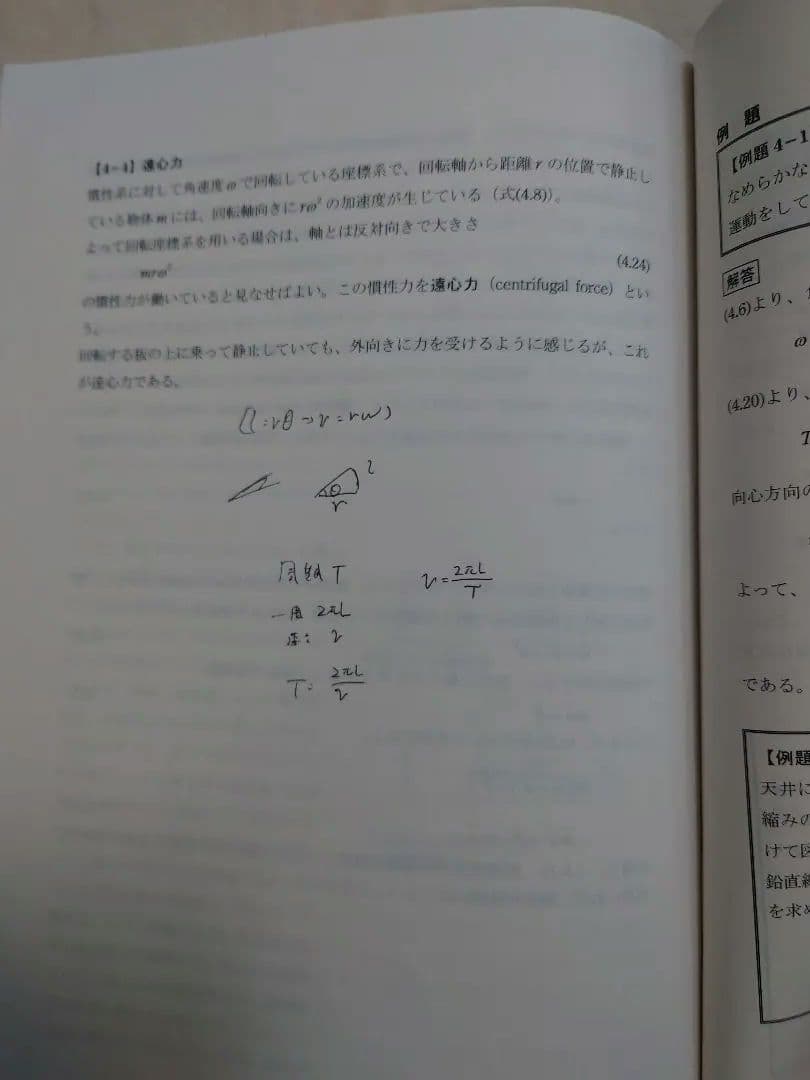 【4-4】遠心力
慣性系に対して角速度ωで回転している座標系で、回転軸から距離rの位置で静止し
ている物体mには、回転軸向きにrω²の加速度が生じている（式(4.8)）。
よって回転座標系を用いる場合は、軸とは反対向きで大きさ
mrω²
(4.24)
の慣性力が働いていると見なせばよい。この慣性力を遠心力（centrifugal force）とい
う。
回転する板の上に乗って静止していても、外向きに力を受けるように感じるが、これ
が遠心力である。
(l=rθ→v=rω)
θ
l
r
周期 T
v=2πL/T
一周 2πL
v
T=2πL/v
例 題
【例題 4-1
なめらかな
運動をして
解答
(4.6)より、
ω
(4.20)より、
T
向心方向の
よって、
である。
【例題
天井に
縮みの
けて図
鉛直線
を求め